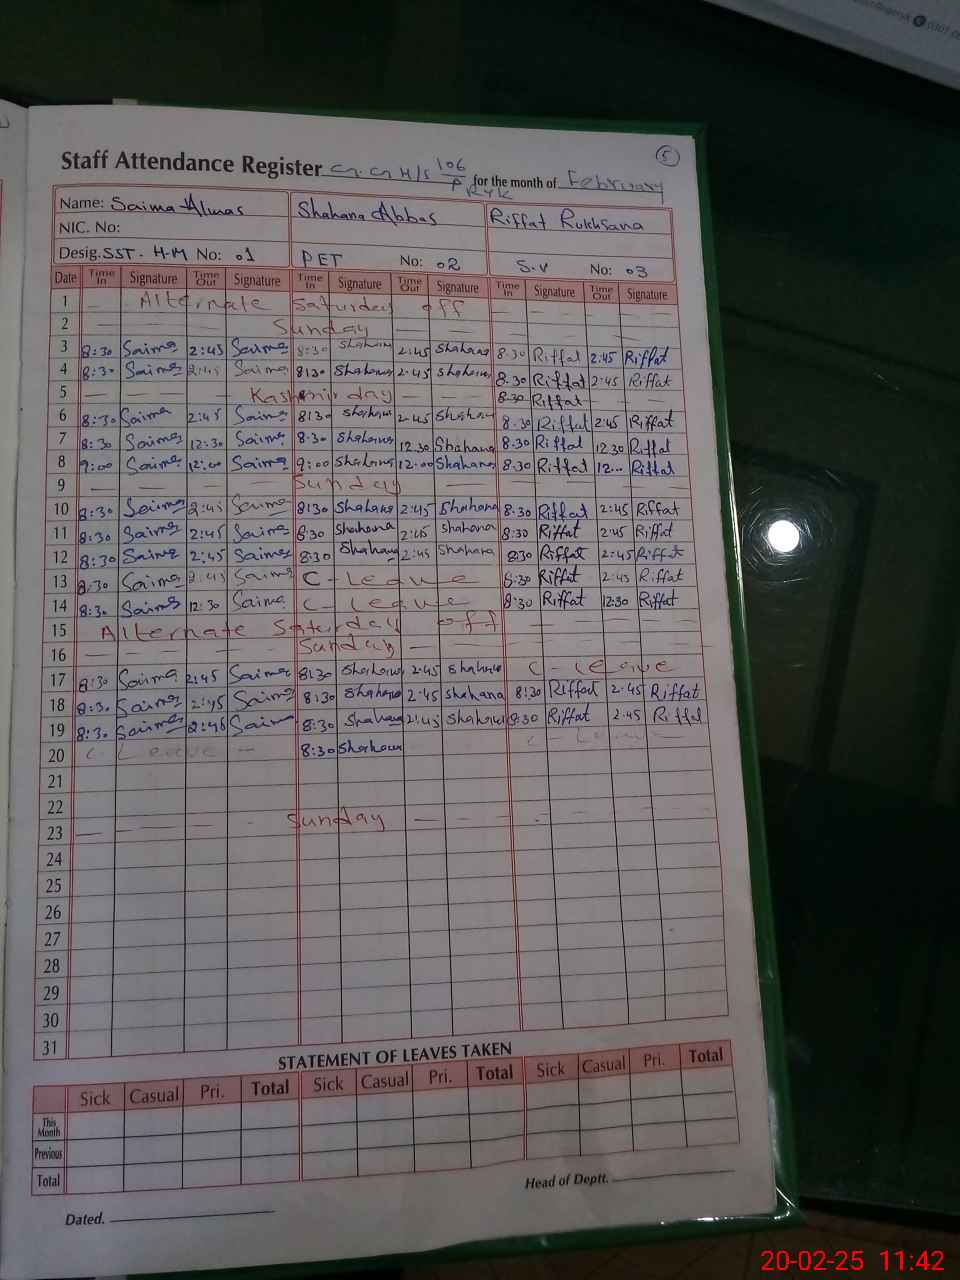 5
Staff Attendance Register G.G H/S 106/P RYK for the month of February
Name: Saima Almas Shahana Abbas Riffat Rukhsana
NIC. No:
Desig. SST - H-M No: 01 PET No: 02 S.V No: 03
Date Time In Signature Time Out Signature Time In Signature Time Out Signature Time In Signature Time Out Signature
1 Alternate Saturday off
2 Sunday
3 8:30 Saima 2:45 Saima 8:30 Shahana 2:45 Shahana 8.30 Riffat 2:45 Riffat
4 8:30 Saima 2:45 Saima 8:30 Shahana 2.45 Shahana 8.30 Riffat 2:45 Riffat
5 Kashmir day 8.30 Riffat
6 8:30 Saima 2:45 Saima 8:30 Shahana 2:45 Shahana 8.30 Riffat 2:45 Riffat
7 8:30 Saima 12:30 Saima 8:30 Shahana 12.30 Shahana 8.30 Riffat 12.30 Riffat
8 9:00 Saima 12:00 Saima 9:00 Shahana 12:00 Shahana 8.30 Riffat 12... Riffat
9 Sunday
10 8:30 Saima 2:45 Saima 8:30 Shahana 2:45 Shahana 8:30 Riffat 2:45 Riffat
11 8:30 Saima 2:45 Saima 8:30 Shahana 2:45 Shahana 8:30 Riffat 2:45 Riffat
12 8:30 Saima 2:45 Saima 8:30 Shahana 2:45 Shahana 8:30 Riffat 2:45 Riffat
13 8:30 Saima 2:45 Saima C-leave 8:30 Riffat 2:45 Riffat
14 8:30 Saima 12:30 Saima C-leave 8:30 Riffat 12:30 Riffat
15 Alternate Saturday off
16 Sunday
17 8:30 Saima 2:45 Saima 8:30 Shahana 2:45 Shahana C-leave
18 8:30 Saima 2:45 Saima 8:30 Shahana 2:45 Shahana 8:30 Riffat 2:45 Riffat
19 8:30 Saima 2:45 Saima 8:30 Shahana 2:45 Shahana 8:30 Riffat 2:45 Riffat
20 C-Leave 8:30 Shahana C-Leave
21
22
23 Sunday
24
25
26
27
28
29
30
31
STATEMENT OF LEAVES TAKEN
Sick Casual Pri. Total Sick Casual Pri. Total Sick Casual Pri. Total
This Month
Previous
Total
Head of Deptt.
Dated.
20-02-25 11:42